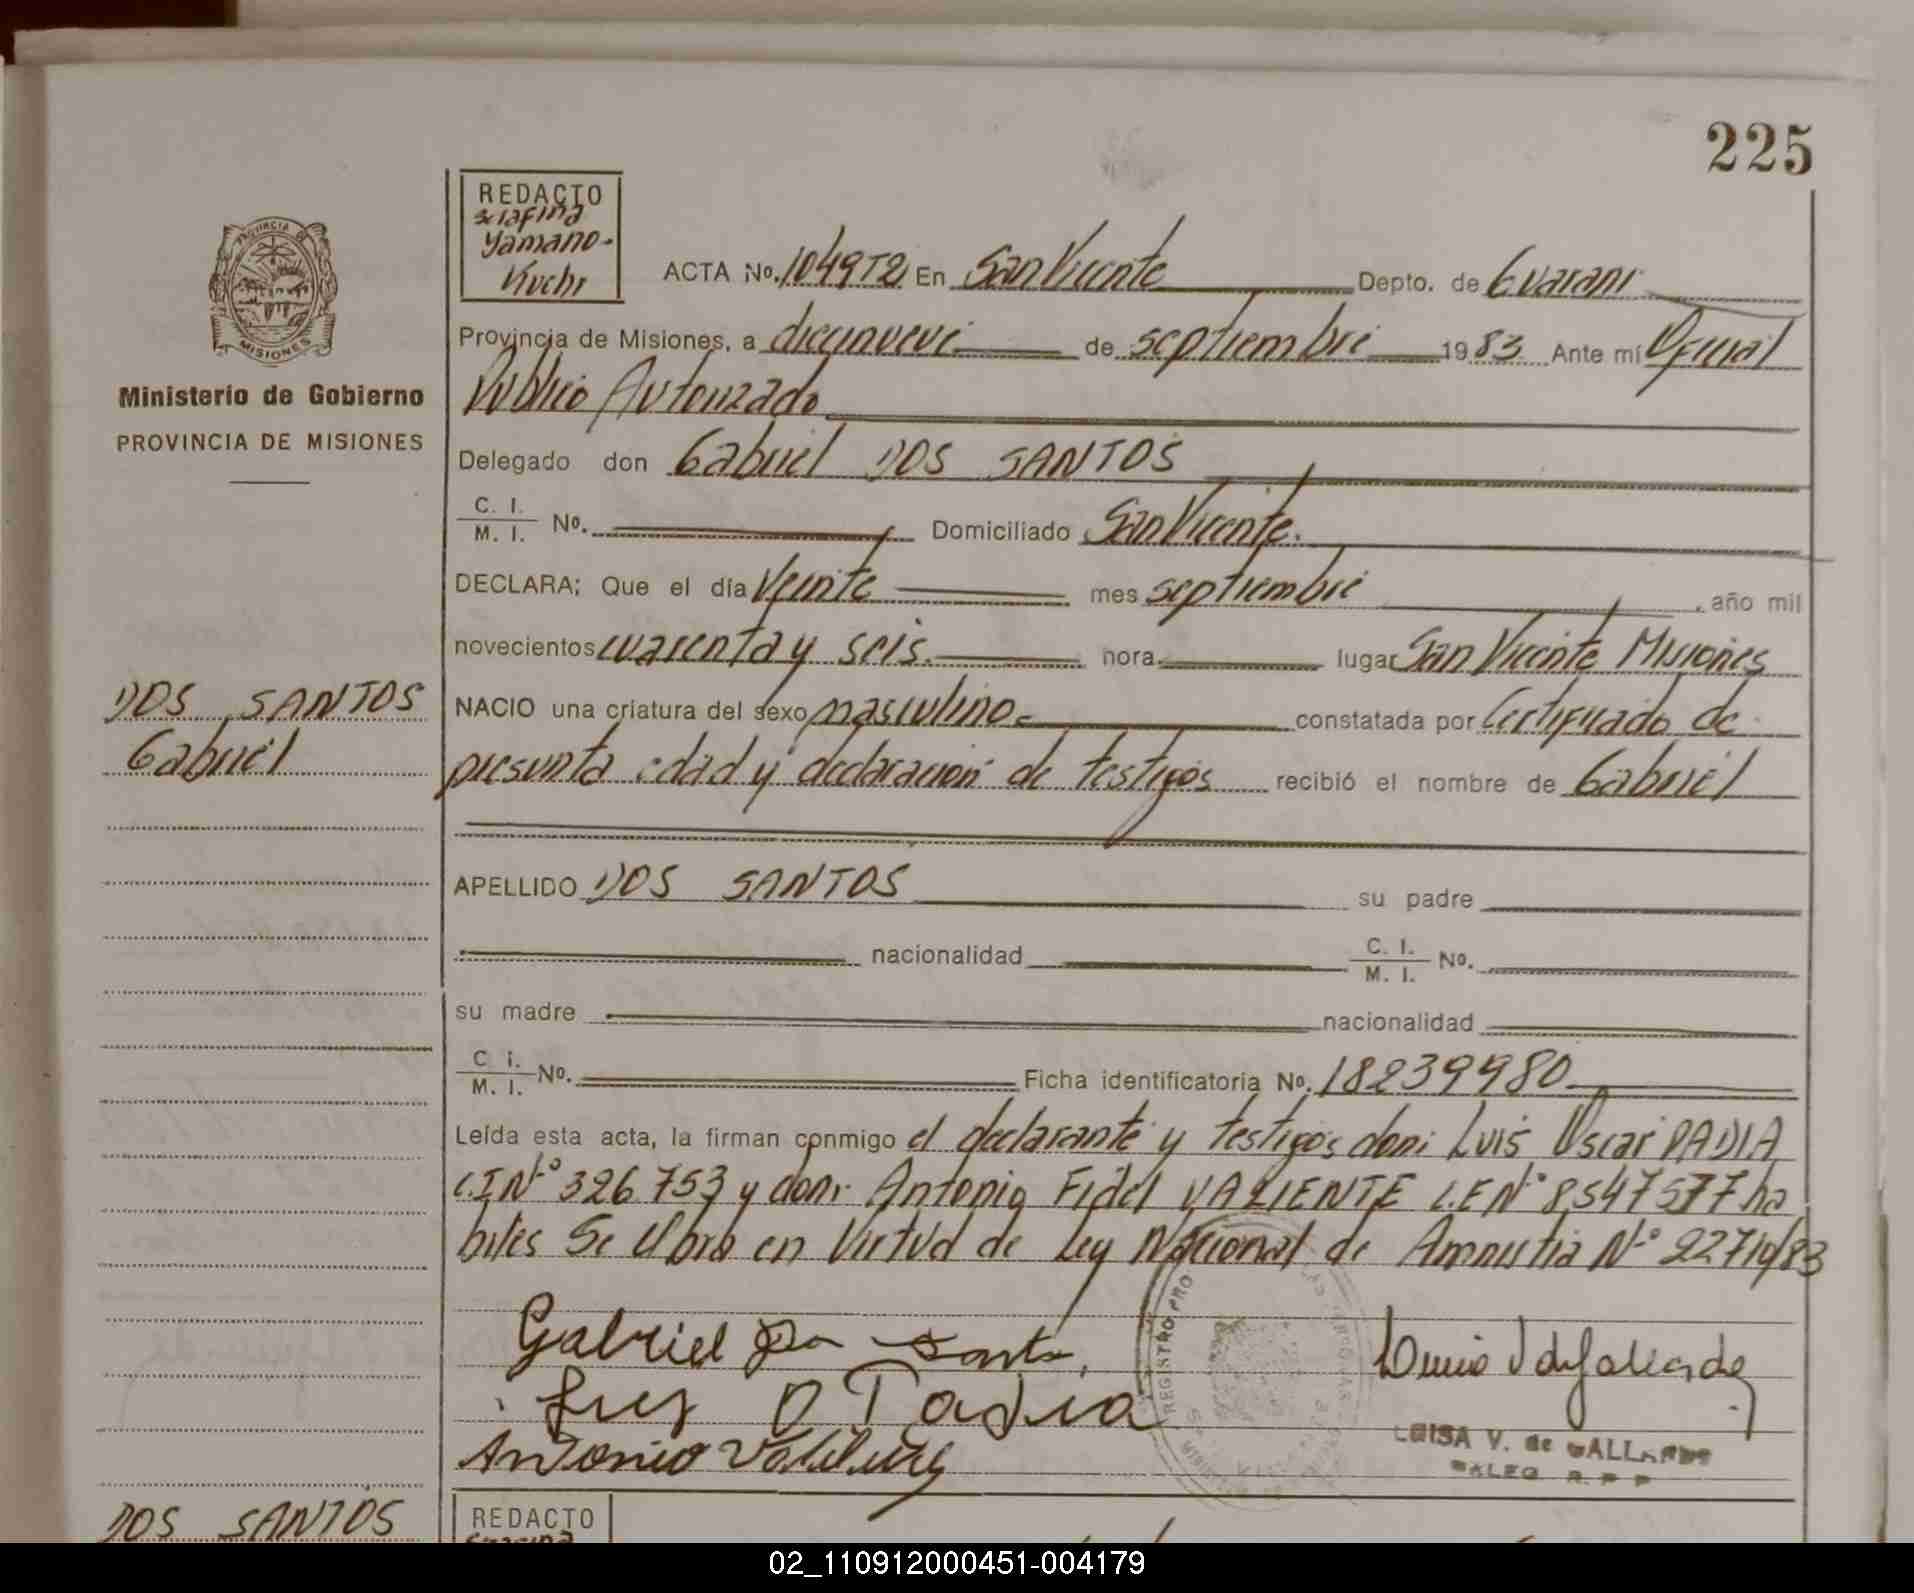 225
REDACTO
Yamano-
Kuchi
PROVINCIA DE
MISIONES
ACTA No. 1049T2 En San Vicente Depto. de Guarani
Provincia de Misiones, a diecinueve de septiembre 1983 Ante mí Oficial
Público Autorizado
Ministerio de Gobierno
PROVINCIA DE MISIONES
Delegado don Gabriel DOS SANTOS
C. I.
M. I. No. Domiciliado San Vicente.
DECLARA; Que el día Veinte mes septiembre , año mil
novecientos cuarenta y seis. hora lugar San Vicente Misiones
DOS SANTOS
Gabriel
NACIO una criatura del sexo masculino- constatada por Certificado de
presunta edad y declaración de testigos recibió el nombre de Gabriel
APELLIDO DOS SANTOS su padre
nacionalidad C. I.
M. I. No.
su madre nacionalidad
C i.
M. I. No. Ficha identificatoria No. 18239980
Leída esta acta, la firman conmigo el declarante y testigos don: Luis Oscar PADIA
C.I Nº 326.753 y don: Antonio Fidel VALIENTE L.E Nº 8.547577 ha
biles Se libra en Virtud de Ley Nacional de Amnistia Nº 22710/83
Gabriel Dos Santos
Luis O Padia
Antonio
REGISTRO PRO
LUISA V. de GALLARDO
DOS SANTOS
REDACTO
02_110912000451-004179